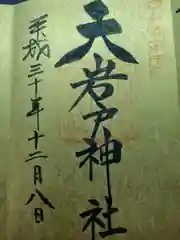 天岩戸神社
平成三十年十二月八日